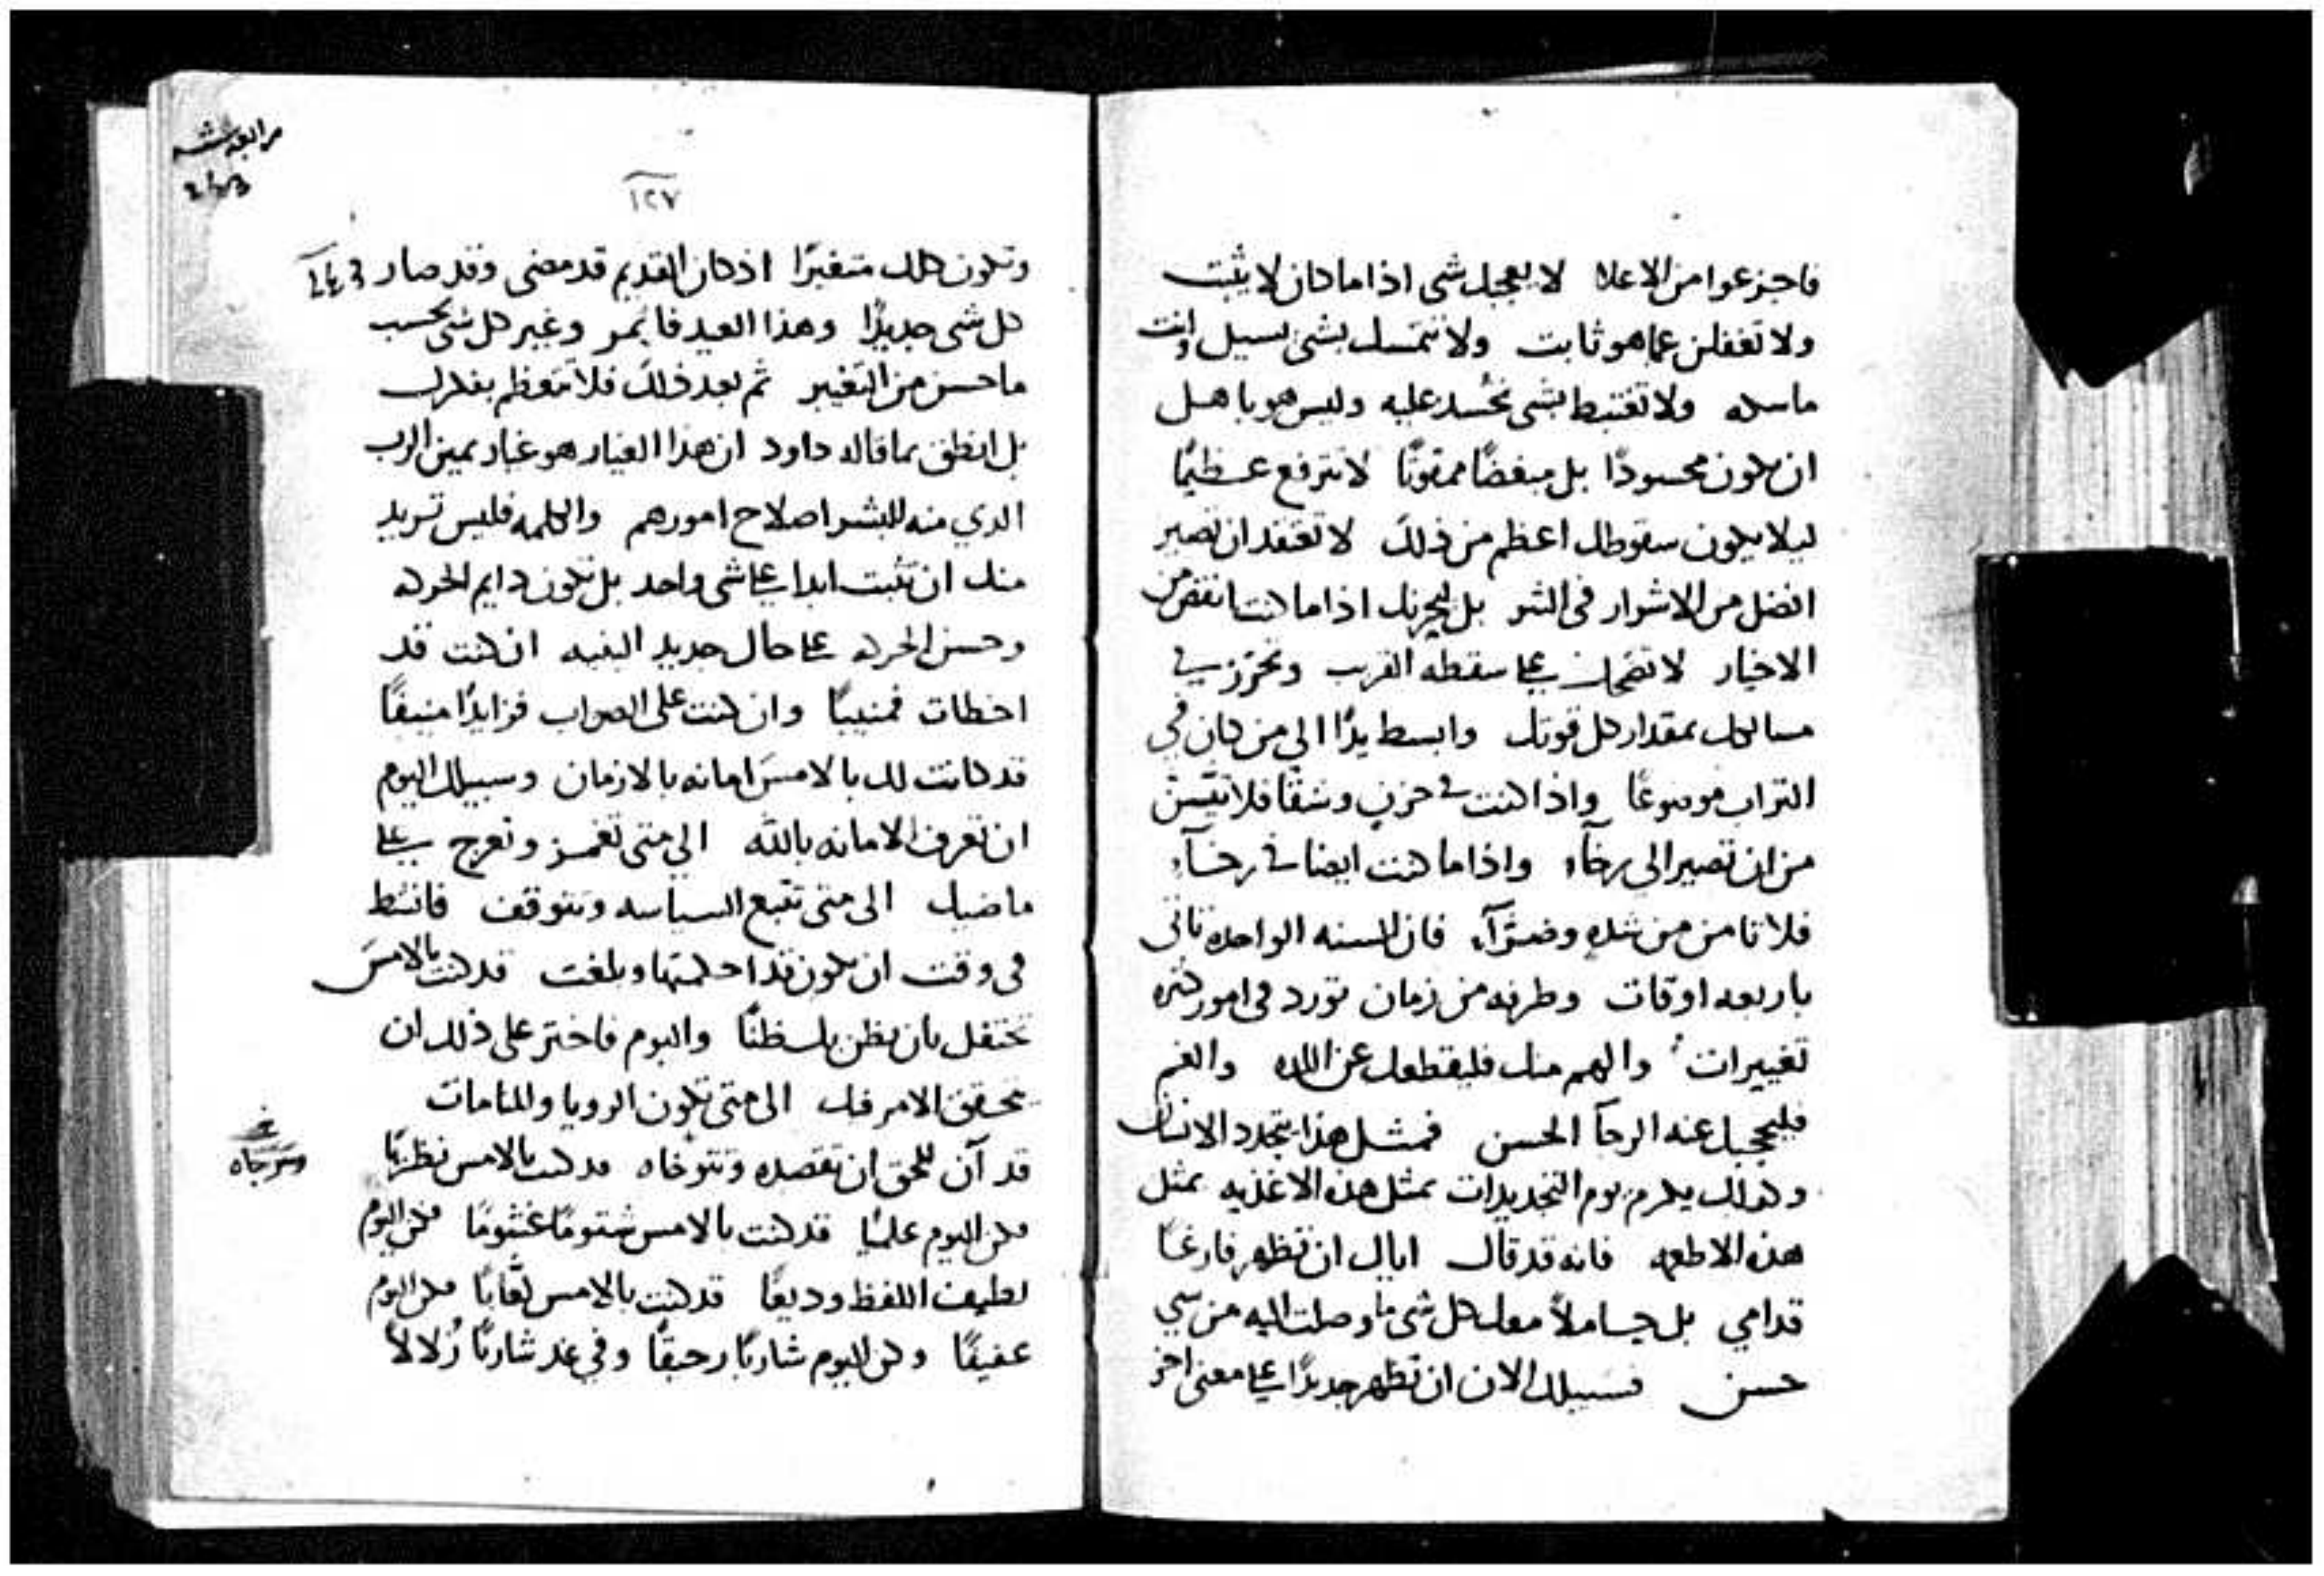 فاجزعوا من الاعلا لا يعجبك شى اذا ما كان لا يثبت
ولا تغفلن عما هو ثابت ولا تتمسك بشى يسيل وانت
ماسكه ولا تغتبط بشى تحسد عليه وليس هو باهل
ان يكون محسودًا بل مبغضًا ممقوتًا لا تترفع عظيمًا
ليلا يكون سقوطك اعظم من ذلك لا تعتقد ان تصير
افضل من الاشرار فى الشر بل ليحزنك اذا ما كنت انقص من
الاخيار لا تضحكن على سقطه القريب وتحرز في
مسالكك بمقدار كل قوتك وابسط يدًا الي من كان في
التراب موضوعًا واذا كنت في حزنٍ وشقًا فلا تيئسن
من ان تصير الي رخآء واذا ما كنت ايضا في رخآء
فلا تامن من شدهٍ وضرّآء فان السنه الواحده تاتى
باربعه اوقات وطرفه من زمان تورد فى امور كثيره
تغييرات والهم منك فليقطعك عن اللذه والغم
فليحجبك عنه الرجآ الحسن فمثل هذا يتجدد الانسان
وكذلك يكرم يوم التجديدات بمثل هذه الاغذيه بمثل
هذه الاطعمه فانه قد قال اياك ان تظهر فارغًا
قدامي بل حاملاً معك كل شى ما وصلت اليه من شي
حسن فسبيلك الان ان تظهر جديدًا على معنى اخر
١٢٧
وتكون كلك متغيرًا اذ كان القديم قد مضى وقد صار
كل شى جديدًا وهذا العيد فاثمر وغير كل شى بحسب
ما حسن من التغيير ثم بعد ذلك فلا تتعظم بفكرك
بل انطق بما قاله داود ان هذا الغيار هو غيار يمين الرب
الذي منه للبشر اصلاح امورهم والكلمه فليس تريد
منك ان تثبت ابدا على شى واحد بل تكون دايم الحركه
وحسن الحركه على حال جديد البنيه ان كنت قد
اخطات فمنيبًا وان كنت على الصواب فزايدًا منيفًا
قد كانت لك بالامس امانه بالازمان وسبيلك اليوم
ان تعرف الامانه بالله الي متى تغمز وتعرج على
ماضيك الى متى تتبع السياسه وتتوقف فانشط
فى وقت ان يكون قد احكمتها وبلغت قد كنت بالامس
تحتفل بان يظن بك ظنًا واليوم فاختر على ذلك ان
تحقق الامر فيك الى متى تكون الرويا والمنامات
قد آن للحق ان تقصده وتتوخاه قد كنت بالامس نظريًا
فكن اليوم عمليًا قد كنت بالامس شتومًا غشومًا فكن اليوم
لطيف اللفظ وديعًا قد كنت بالامس لعّابًا فكن اليوم
عفيفًا وكن اليوم شاربًا رحيقًا وفي غد شاربًا زُلالاً